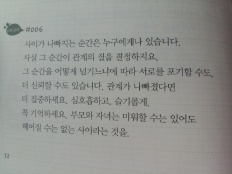 #006
사이가 나빠지는 순간은 누구에게나 있습니다.
사실 그 순간이 관계의 질을 결정하지요.
그 순간을 어떻게 넘기느냐에 따라 서로를 포기할 수도,
더 신뢰할 수도 있습니다. 관계가 나빠졌다면
더 집중하세요. 심호흡하고, 슬기롭게.
꼭 기억하세요. 부모와 자녀는 미워할 수는 있어도
헤어질 수는 없는 사이라는 것을.
12